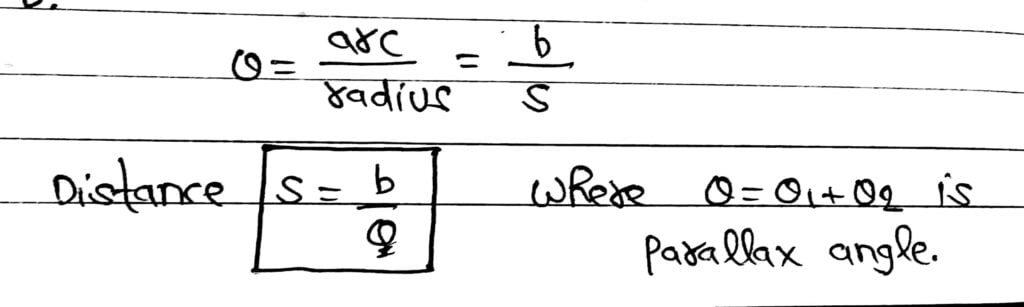 θ = arc/radius = b/s
Distance s = b/θ where θ = θ1 + θ2 is
parallax angle.